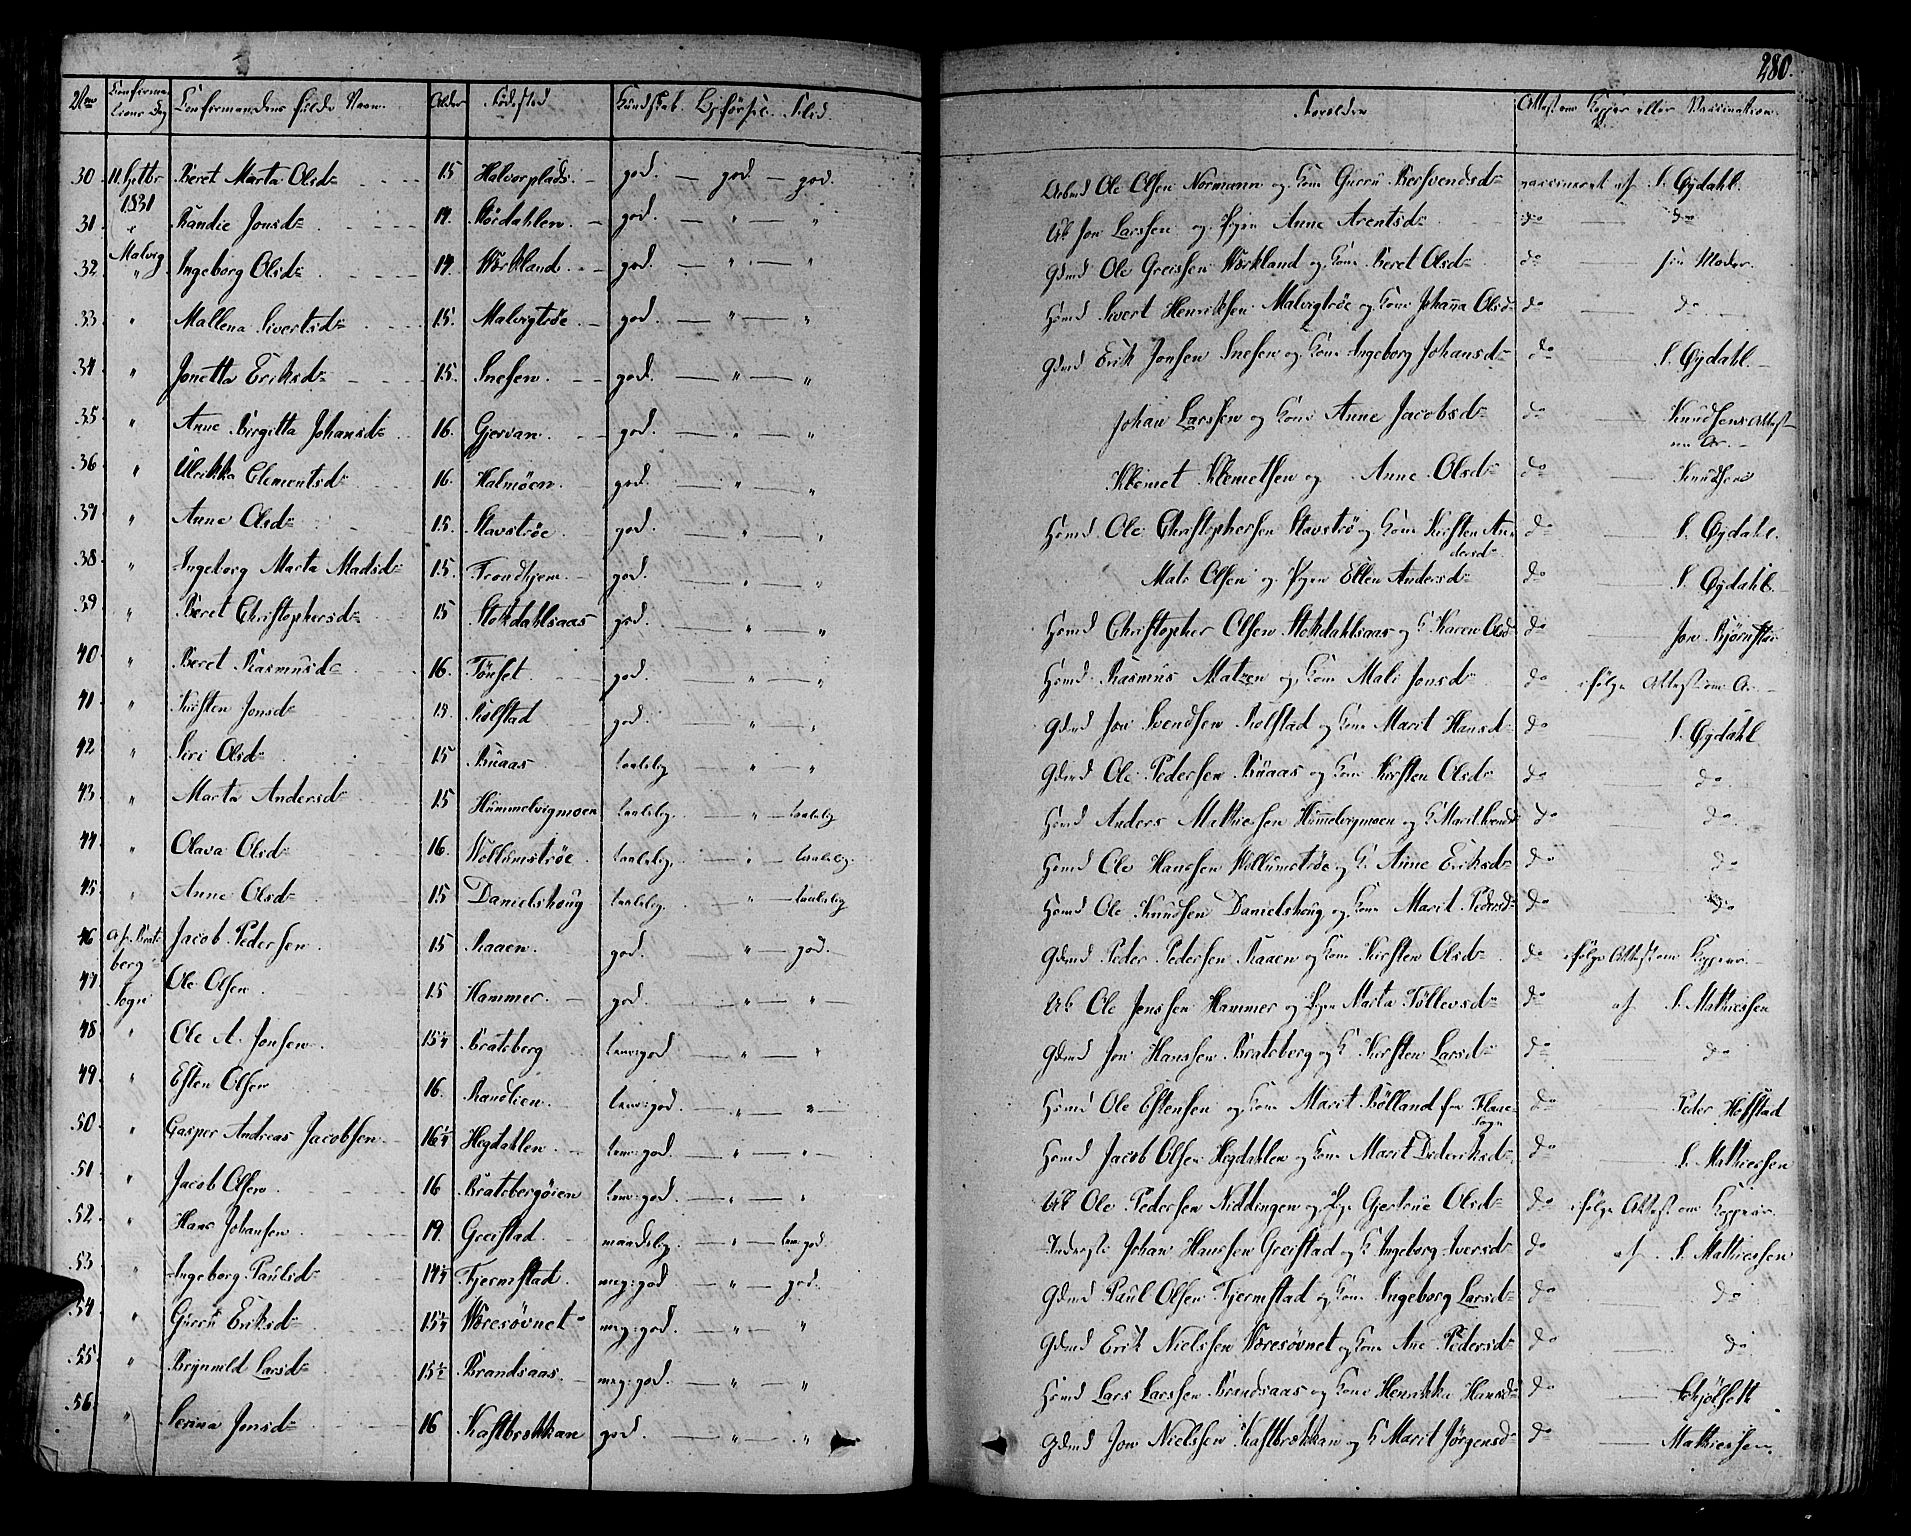 280.
No Confirmations Dag Confirmandens fulde Navn. Alder Fødested Kundskab. Opførsel. Flid. Forældre Attest om Kopper eller Vaccination.
30 11 Octbr 1831 Beret Marta Olsdr 15 Halvorplads. god. god god. Arbmd Ole Olsen Normann og Kone Gurru Bersvendsdr vaccineret af S. Øydahl.
31 " Randie Jonsdr 19. Stördahlen god. " " Uk Jon Larssen og Pigen Anne Arentsdr do do
32. Malvig " Ingeborg Olsdr 19. Værkland god. " " Gdmd Ole Greissen Værkland og Kone Beret Olsdr do sin Moder.
33 " Mallena Sivertsdr 15. Malvigtröe god. " " Hsmd Sivert Henriksen Malvigtröe og Kone Johanna Olsdr do do
34 " Jonetta Eriksdr 15. Snesen. god. " " Gdmd Erik Jonsen Snesen og Kone Ingeborg Johansdr do S. Øydahl.
35. " Anne Birgitta Johansdr 16. Gjervan. god. " " Johan Larssen og Kone Anne Jacobsdr do Knudsens Attest om Ar.
36 " Ulrikka Clementsdr 16. Halmöen. god. " " Klemet Klemetsen og Anne Olsdr do Knudsens
37 " Anne Olsdr 15. Stavströe god. " " Hsmd Ole Christophersen Stavströ og Kone Kirsten Andersdr do S. Øydahl.
38. " Ingeborg Marta Madsdr 15. Trondhjem. god. " " Mads Olsen og Pigen Ellen Andersdr do S. Øydahl.
39 " Beret Christophersdr 15 Stokdahlsaas god. " " Hsmd Christopher Olsen Stokdahlsaas og K Karen Olsd do Jon
40 " Beret Rasmusdr 16. Tönset god. " " Hsmd Rasmus Matzen og Kone Mali Jonsdr do ifölge Attest om Ar
41 " Kirsten Jonsdr 13. Rolstad god. " " Gdmd Jon Svendsen Rolstad og Kone Marit Hansd do S. Øydahl
42 " Siri Olsdr 15 Buaas taalelig " " Gdmd Ole Pedersen Buaas og Kone Kirsten Olsdr do do
43. " Marta Andersdr 15 Hummelvigmoen taalelig. " taalelig Hsmd Anders Mathiesen Hummelvigmoen og K Marit do do
44 " Olava Olsdr 16. Vollumströe taalelig. " taalelig. Hsmd Ole Hansen Vollumströe og K. Anne Eriksdr do do
45 " Anne Olsdr 15 Danielshoug taalelig. " taalelig Hsmd Ole Knudsen Danielshoug og Kone Marit Pedersd do do
46 af Bratsberg Sogn Jacob Pedersen. 15 Raaen. god. " god. Gdmd Peder Pedersen Raaen og Kone Kirsten Olsdr do ifölge Attest om Kopper.
47 Ole Olsen 15 Hammer. god. " " Uk Ole Jonssen Hammer og Pigen Marta Töllevsdr do af S. Mathiessen
48 " Ole A. Jonsen 15¼ Bratsberg god " " Gdmd Jon Hanssen Bratsberg og K Kirsten Larsdr do do
49 " Esten Olsen 16. Randlien. god. " " Hsmd Ole Estensen og Kone Marit Bölland fra Sogn do Peder Hofstad
50 " Casper Andreas Jacobsen 16¼ Hegdahlen god. " " Hsmd Jacob Olsen Hegdahlen og Kone Marit Dideriksd. do S. Mathiessen
51. " Jacob Olsen 16 Bratsbergöien god. " " Uk Ole Pedersen Niddingen og Pige Gjertrue Olsdr do ifölge Attest om Kopper
52 " Hans Johansen 19. Greistad maadelig. " god. Johan Hanssen Greistad og K Ingeborg Iversdr do af S. Mathiessen
53 " Ingeborg Paulsdr 14¼ Tjermstad. meg: god " god. Gdmd Paul Olsen Tjermstad og Kone Ingeborg Larsdr do do
54 " Gurru Eriksdr 15¼ Væresövnet meg: god. " " Gdmd Erik Nielssen Væresövnet og Kone Ane Pedersdr do do
55 " Brynnild Larsdr 15½ Brandsaas. meg: god. " " Hsmd Lars Larssen Brandsaas og Kone Henrikka Hansdr do Schjölset
56. " Serina Jonsdr 16 Kastbrækkan god. " " Gdmd Jon Nielssen Kastbrækkan og K Marit Jörgensd do Mathiessen.